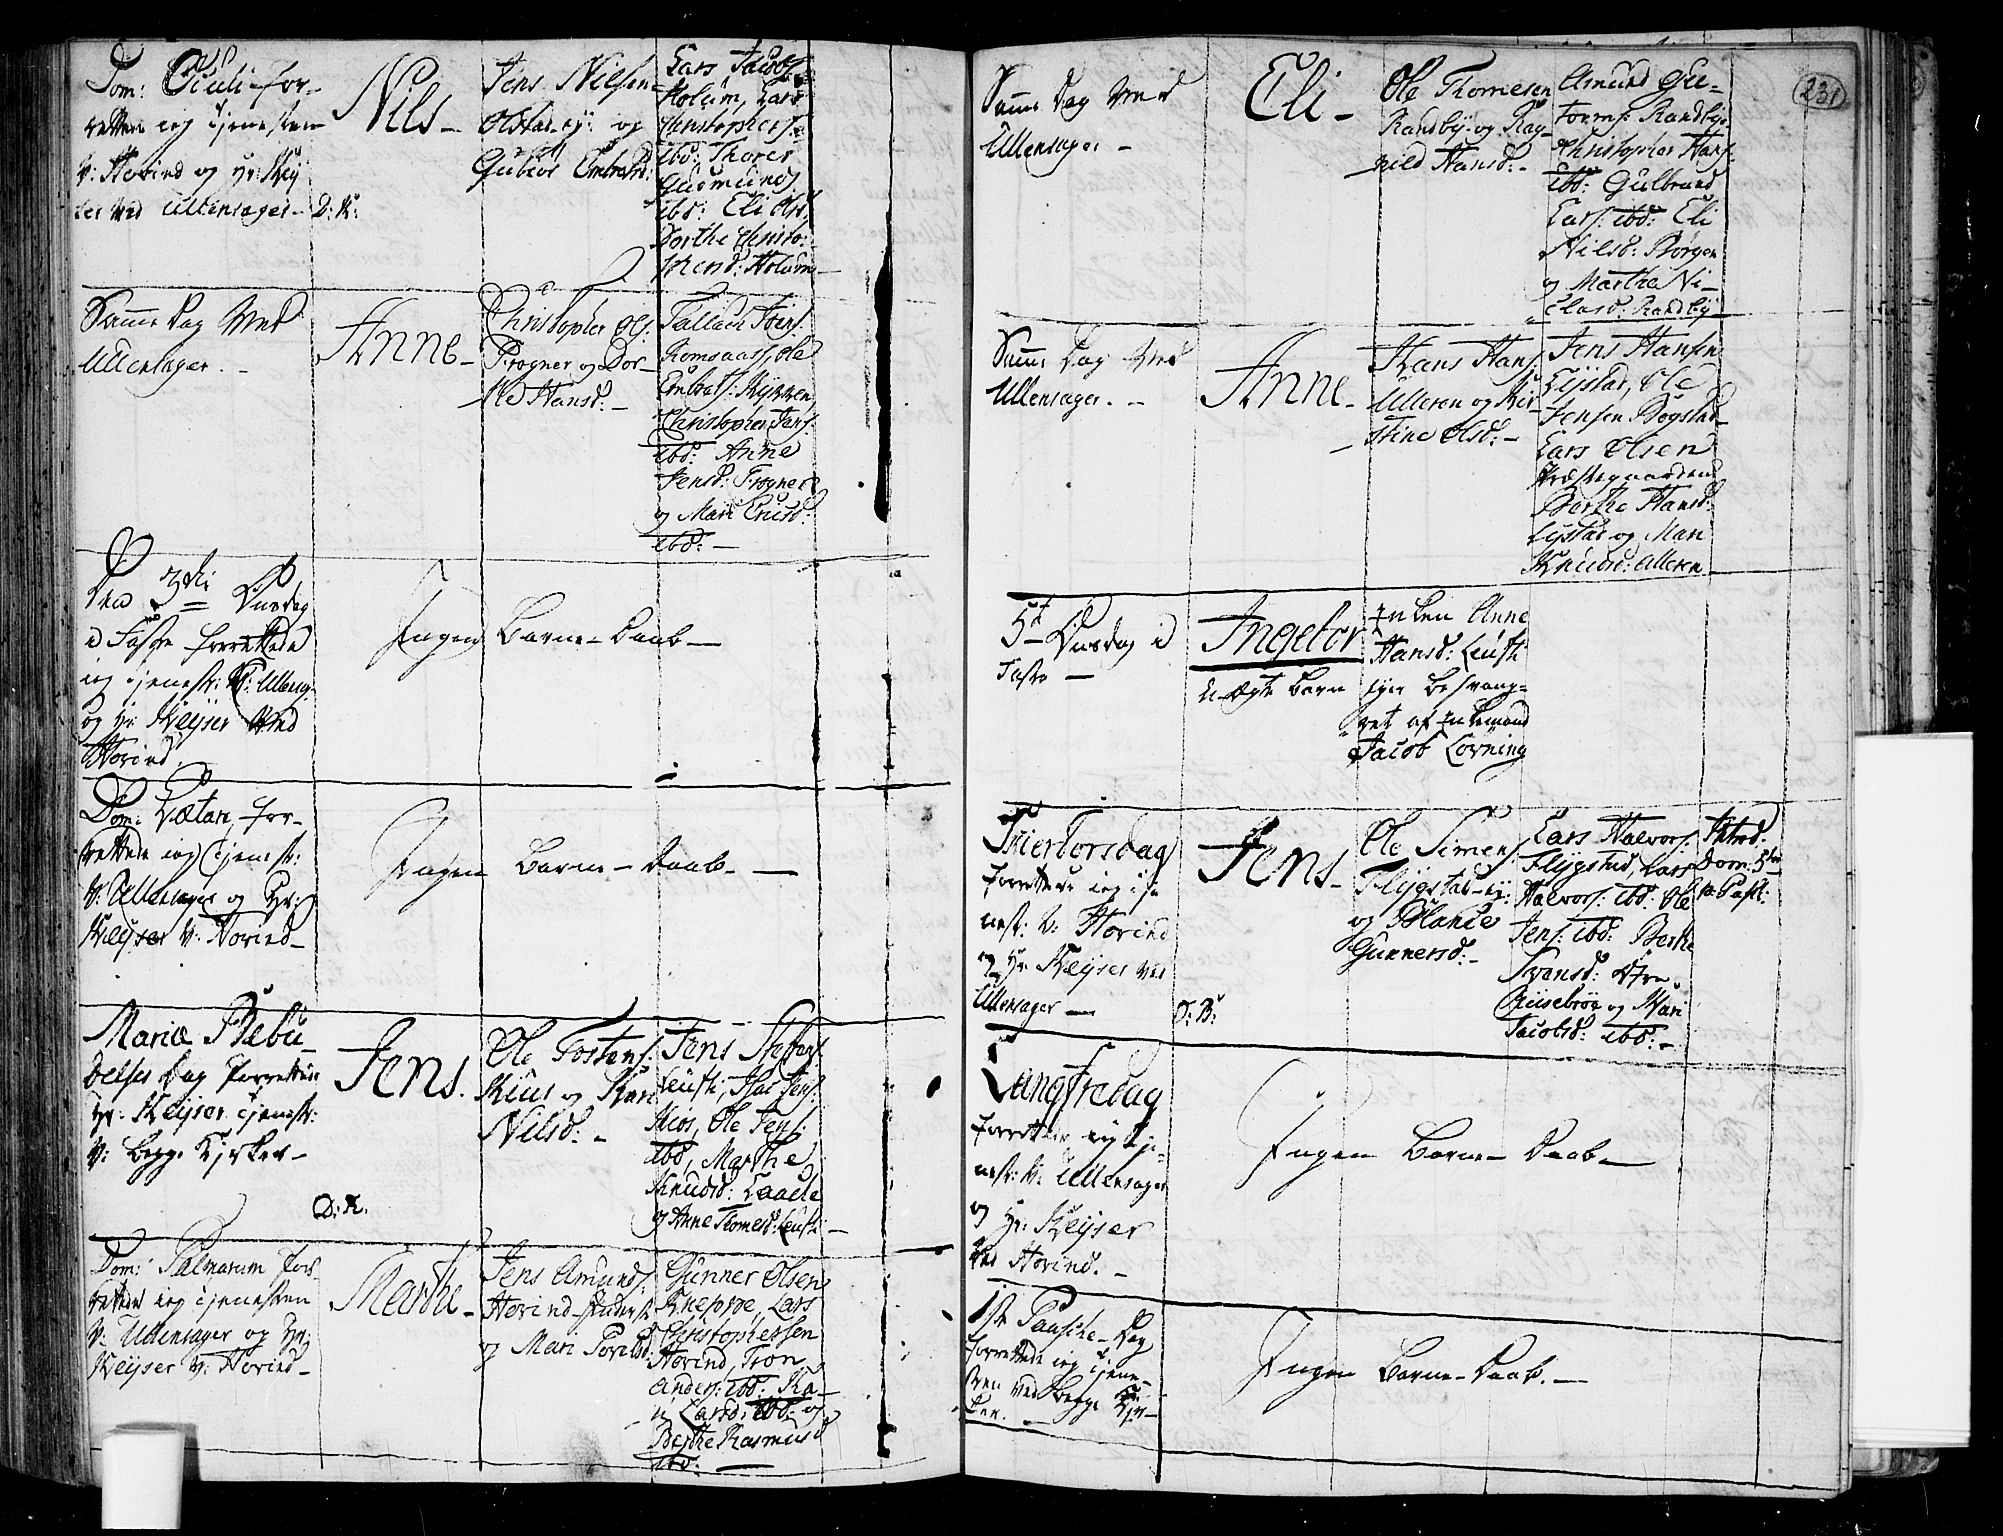 Dom: Oculi for-
rettede ieg Tjenesten
V: Hovind og Hr: Key
ser Ved Ullensager- D: K:
Nils-
Jens Nilsen
Olstad-ej: og
Gubior Embretsd:
Lars Jacobs:
Holum, Lars
Christophers:
ibd: Thorer
Gudmunds:
ibd: Eli Olsd:
Dorthe Christo-
phersd: Holum-
Samme Dag Ved
Ullensager. -
Anne-
Christopher Ols:
Frogner og Dor-
the Hansd: -
Tallach Jens:
Romsaas, Ole
Embrets: Kykken,
Christopher Jens:
ibd: Anne
Jensd: Frogner
og Mari Ericsd:
ibd: -
Den 3die Onsdag
i Faste forrettede
ieg Tjenest: V: Ullensag:
og Hr Keyser Ved
Hovind.
Ingen Barne-Daab-
Dom: Lætare, for-
rettede ieg Tjenest:
V: Ullensager og Hr:
Keyser V: Hovind-
Ingen Barne-Daab. -
Mariæ Bebu-
delses Dag forrettede
Hr: Keyser Tjenest:
V: begge Kirker-
D: K.
Jens.
Ole Tostens:
Kius og Kari
Nilsd: -
Jens Steffens:
Leufti, Isac Jens:
Kios, Ole Jens:
ibd, Marthe
Knudsd: Laache
og Anne Thomesd: Leufti-
Dom: Palmarum for
rettede ieg Tjenesten
V: Ullensager og Hr:
Keyser V: Hovind-
Marthe-
Jens Amunds:
Hovind-
og Mari Povelsd:
Gunner Olsen
Kneppe, Lars
Christophersen
Hovind, Tron
Anders: ibd: Ka-
ri Larsd: ibd: og
Berthe Rasmusd
ibd: -
231
Samme Dag Ved
Ullensager -
Eli-
Ole Thomesen
Randby og Rag-
nild Hansd: -
Amund Gut-
torms: Randby,
Christopher Hans:
ibd: Gulbrand
Lars: ibd: Eli
Nilsd: Borgen
og Marthe Ni-
elsd: Randby-
Samme Dag Ved
Ullensager. -
Anne-
Hans Hans:
Ulleren og Kir-
stine Olsd: -
Jens Hansen
Lystad, Ole
Jensen Bogstad-
Lars Olsen
Præstegaarden
Berthe Hansd:
Lystad og Mari
Knudsd: Ulleren
5t Onsdag i
Faste -
Ingebor
U-Ægte Barn
Enken Anne
Hansd: Leufti
ejer besvang-
ret af Enkemand
Jacob Lovning
Skiertorsdag
forrettede ieg Tje
nest: V: Hovind
og Hr Keyser Ved
Ullensager -
D: B:
Jens-
Ole Simens:
Flygstad-ej:
og Blance
Gunnersd: -
Lars Halvors:
Flygstad, Lars
Halvors: ibd: Ole
Jens: ibd: Berthe
Svensd:
Riisebroe og Mari
Jacobsd: ibd: -
Introd:
Dom: 5ta
p: Pasc:
Langfredag
forrettede ieg Tje-
nest: V: Ullensager
og Hr: Keyser
Ved Hovind. -
Ingen Barne-Daab-
1ste Paaske-Dag
forrettede ieg Tjene-
sten Ved begge Kir-
ker. -
Ingen Barne-Daab. -